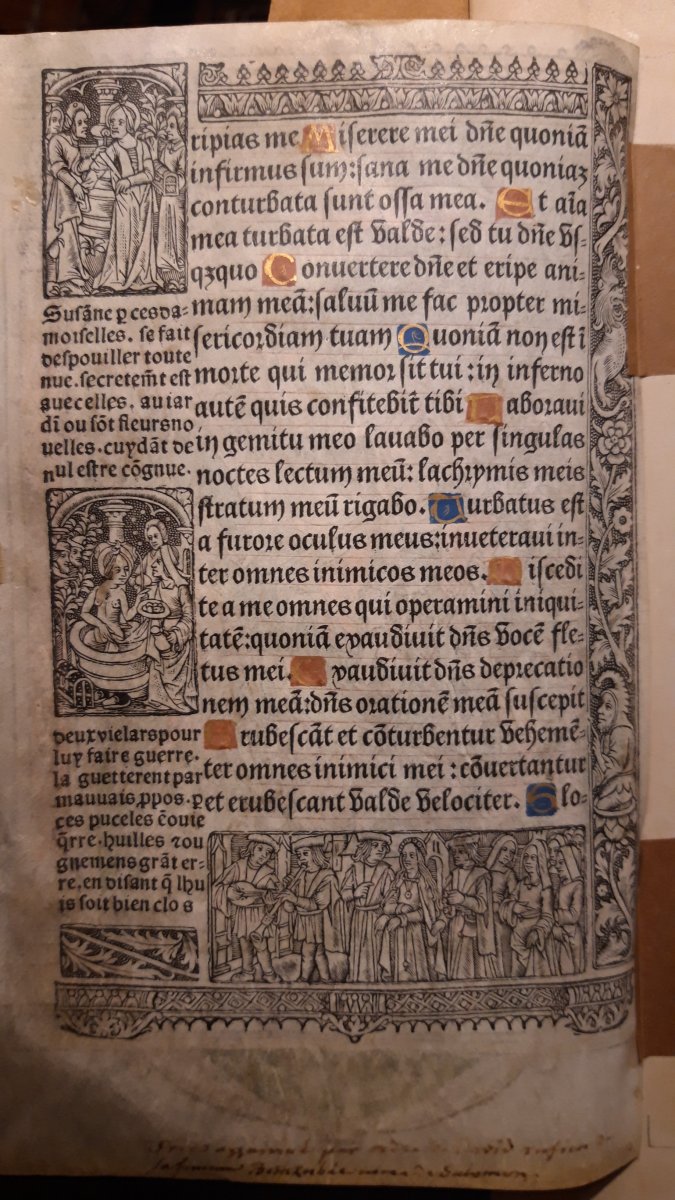 ripias me Miserere mei dñe quoniã
infirmus sum: sana me dñe quoniaꝫ
conturbata sunt ossa mea. Et aĩa
mea turbata est valde: sed tu dñe vs-
qꝫquo Conuertere dñe et eripe ani-
mam meã: saluũ me fac propter mi-
sericordiam tuam Quoniã non est ĩ
morte qui memor sit tui: in inferno
autẽ quis confitebit̃ tibi aboraui
in gemitu meo lauabo per singulas
noctes lectum meũ: lachrymis meis
stratum meũ rigabo. urbatus est
a furore oculus meus: inueteraui in-
ter omnes inimicos meos. iscedi
te a me omnes qui operamini iniqui-
tatẽ: quoniã exaudiuit dñs vocẽ fle-
tus mei. xaudiuit dñs deprecatio
nem meã: dñs orationẽ meã suscepit
rubescãt et cõturbentur vehemẽ-
ter omnes inimici mei: cõuertantur
et erubescant valde velociter. Glo-
Susãne ꝑ ces da-
moiselles. se fait
despouiller toute
nue. secretem̃t est
auec elles. au iar
dĩ ou sõt fleurs no
uelles. cuydãt de
nul estre cõgnue.
deux vielars pour
luy faire guerre.
la guetterent par
mauuais ꝓpos. ꝑ
ces puceles ẽuoie
q̃rre. huilles ⁊ ou
gnemens grãt er-
re. en disant q̃ lhu
is soit bien clos
par ordre de David
de Salomon.